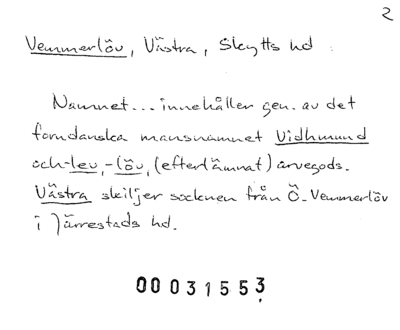 2
Vemmerlöv, Västra, Skytts hd
Namnet... innehåller gen. av det
forndanska mansnamnet Vidhmund
och -lev, -löv, (efterlämnat) arvegods.
Västra skiljer socknen från Ö. Vemmerlöv
i Järrestads hd.
00031553